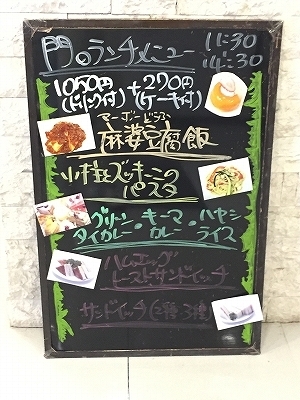 門のランチメニュー 11:30
14:30
1050円 +270円
(ドリンク付) (ケーキ付)
マーボーどうふ
麻婆豆腐飯
小柱とズッキーニの
パスタ
グリーン・キーマ・ハヤシ
タイカレー カレー ライス
ハムエッグ
トーストサンドイッチ
サンドイッチ(2種・3種)